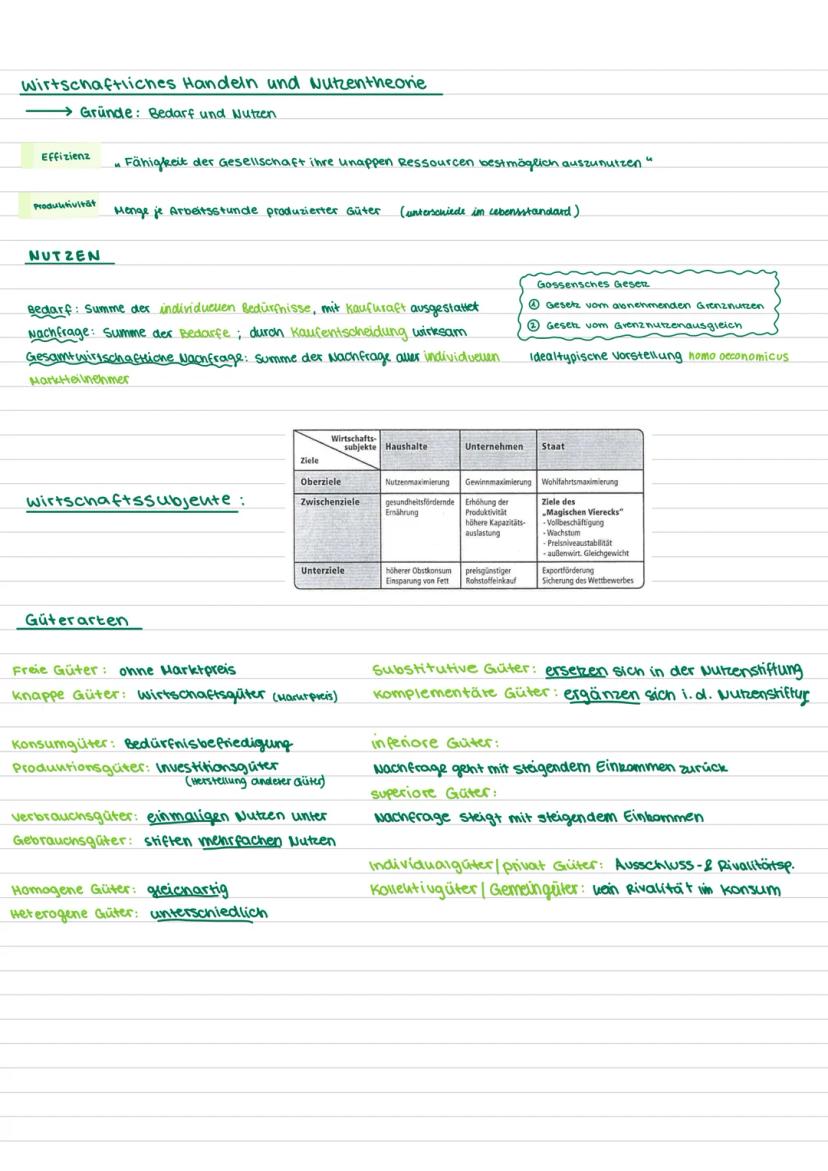 Wirtschaftliches Handeln und Nutzentheorie
→ Gründe: Bedarf und Nutzen
Effizienz „Fähigkeit der Gesellschaft ihre knappen Ressourcen bestmöglich auszunutzen“
Produktivität Menge je Arbeitsstunde produzierter Güter (unterschiede im Lebensstandard)
NUTZEN
Bedarf: Summe der individuellen Bedürfnisse, mit Kaufkraft ausgestattet
Nachfrage: Summe der Bedarfe; durch Kaufentscheidung wirksam
Gesamtwirtschaftliche Nachfrage: Summe der Nachfrage aller individuellen
Marktteilnehmer
Gossensches Gesetz
① Gesetz vom abnehmenden Grenznutzen
② Gesetz vom Grenznutzenausgleich
Idealtypische Vorstellung homo oeconomicus
Wirtschaftssubjekte:
Wirtschafts-
subjekte
Ziele
Haushalte Unternehmen Staat
Oberziele Nutzenmaximierung Gewinnmaximierung Wohlfahrtsmaximierung
Zwischenziele
gesundheitsfördernde
Ernährung
Erhöhung der
Produktivität
höhere Kapazitäts-
auslastung
Ziele des
„Magischen Vierecks“
- Vollbeschäftigung
- Wachstum
- Preisniveaustabilität
- außenwirt. Gleichgewicht
Unterziele
höherer Obstkonsum
Einsparung von Fett
preisgünstiger
Rohstoffeinkauf
Exportförderung
Sicherung des Wettbewerbes
Güterarten
Freie Güter: ohne Marktpreis
Knappe Güter: Wirtschaftsgüter (Marktpreis)
Konsumgüter: Bedürfnisbefriedigung
Produktionsgüter: Investitionsgüter
(Herstellung anderer Güter)
Verbrauchsgüter: einmaligen Nutzen unter
Gebrauchsgüter: stiften mehrfachen Nutzen
Homogene Güter: gleichartig
Heterogene Güter: unterschiedlich
Substitutive Güter: ersetzen sich in der Nutzenstiftung
Komplementäre Güter: ergänzen sich i.d. Nutzenstiftug
inferiore Güter:
Nachfrage geht mit steigendem Einkommen zurück
superiore Güter:
Nachfrage steigt mit steigendem Einkommen
Individualgüter/privat Güter: Ausschluss-& Rivalitätsp.
Kollektivgüter/Gemeingüter: kein Rivalität im Konsum